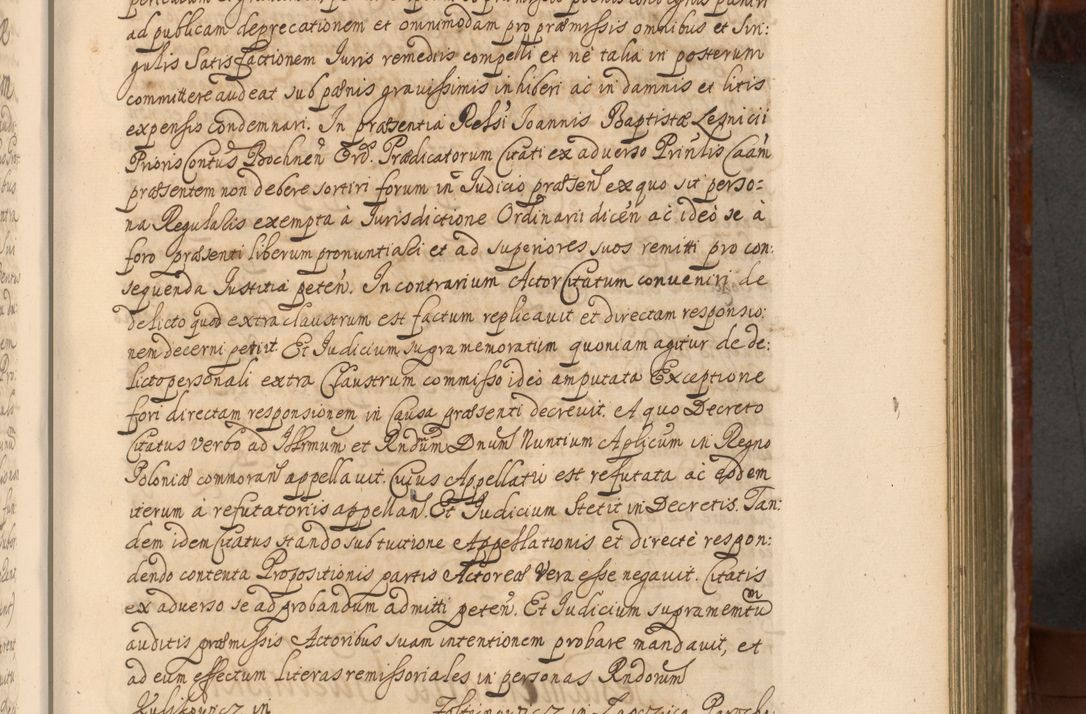 ad publicam deprecationem et omnimodam pro præmissis omnibus et Sin:
gulis Satisfactionem Juris remediis compelli et ne talia in posterum
committere audeat sub pœnis gravissimis inhiberi ac in damnis et litis
expensis condemnari. In præsentia Relsi Joannis Baptistæ Lesnicii
Prioris Contus Bochnen Ord. Prædicatorum Citati ex adverso Prinlis Caam
præsentem non debere sortiri forum in Judicio præsenl ex quo sit perso:
na Regularis exempta à Jurisdictione Ordinarii dicen ac ideo se à
foro præsenti liberum pronuntiari et ad superiores suos remitti pro con:
sequenda Justitia peten. In contrarium Actor Citatum conveniri de
delicto quod extra claustrum est factum replicavit et directam responsio:
nem decerni petiit. Et Judicium supra memoratum quoniam agitur de de:
licto personali extra Claustrum commisso ideo amputata Exceptione
fori directam responsionem in Causa præsenti decrevit. A quo Decreto
Citatus verbo ad Illrmum et Rndum Dnum Nuntium Aplicum in Regno
Poloniæ commoran appellavit. Cuius Appellatii est refutata ac eodem
iterum à refutatoriis appellan. Et Judicium Stetit in Decretis. Tan:
dem idem Citatus stando sub tuitione Appellationis et directe respon:
dendo contenta Propositionis partis Actoreæ vera esse negavit. Citatis
ex adverso se ad probandum admitti peten. Et Judicium supramemtum
auditis præmissis Actoribus suam intentionem probare mandavit, et
ad eum effectum literas remissoriales in personas Rndorum